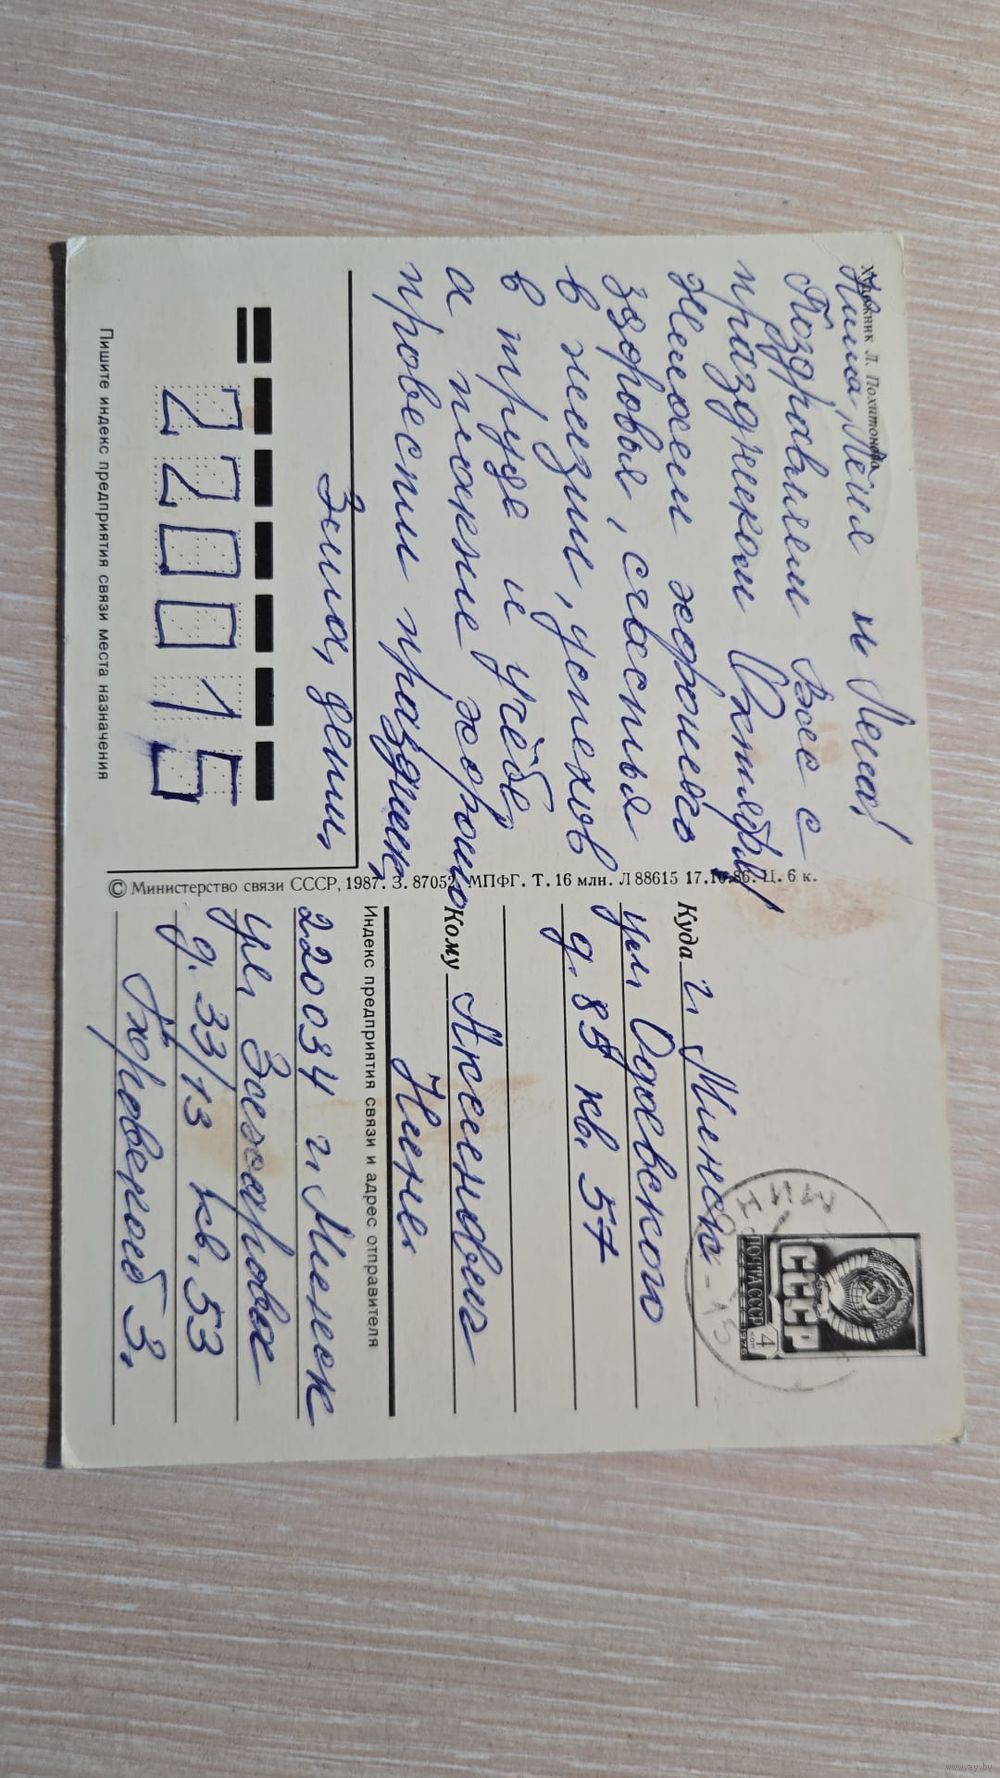 Художник Л. Похитонова
Нина, Петя и Леша!
Поздравляем Вас с
праздником Октября!
Желаем хорошего
здоровья, счастья
в жизни, успехов
в труде и учёбе,
а также хорошо
провести праздник,
Элла, дети.
220015
Пишите индекс предприятия связи места назначения
© Министерство связи СССР, 1987. З. 87052. МПФГ. Т. 16 млн. Л 88615 17.10.86. Ц. 6 к.
СССР
ПОЧТА СССР 4
Куда г. Минск - 15
ул. Одоевского
д. 85 кв. 57
Кому Аксенович
Нине.
Индекс предприятия связи и адрес отправителя
220034 г. Минск
ул. Захарова
д. 33/13 кв. 53
З.
www.ay.by